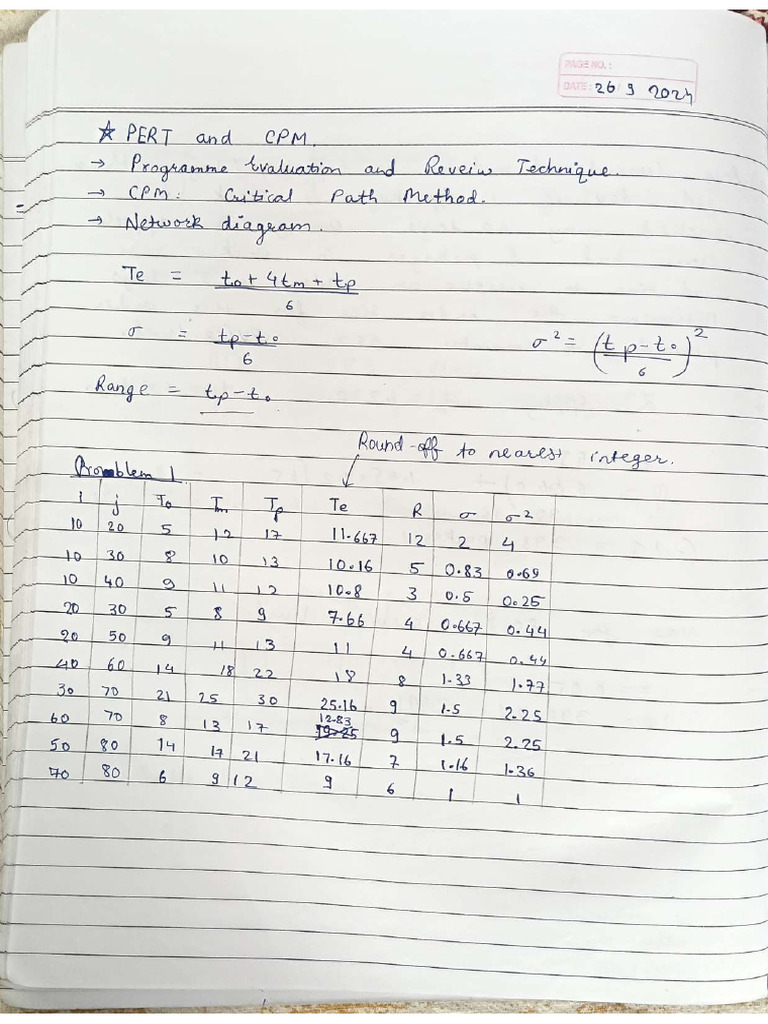 PAGE NO.:
DATE: 26 9 2024
☆ PERT and CPM.
→ Programme Evaluation and Reveiw Technique.
→ CPM: Critical Path Method.
→ Network diagram.
Te = to + 4tm + tp / 6
σ = tp - to / 6 σ² = (tp - to / 6)²
Range = tp - to
Round-off to nearest integer.
Problem 1.
i j To Tm Tp Te R σ σ²
10 20 5 12 17 11.667 12 2 4
10 30 8 10 13 10.16 5 0.83 0.69
10 40 9 11 12 10.8 3 0.5 0.25
20 30 5 8 9 7.66 4 0.667 0.44
20 50 9 11 13 11 4 0.667 0.44
40 60 14 18 22 18 8 1.33 1.77
30 70 21 25 30 25.16 9 1.5 2.25
60 70 8 13 17 12.83 9 1.5 2.25
50 80 14 17 21 17.16 7 1.16 1.36
70 80 6 9 12 9 6 1 1